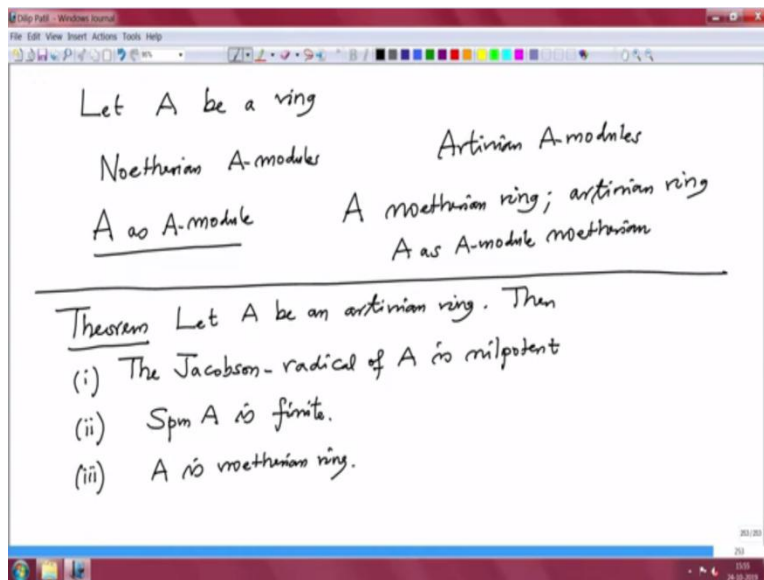 Dilip Patil - Windows Journal
File Edit View Insert Actions Tools Help
Let A be a ring
Noetherian A-modules
Artinian A-modules
A as A-module
A noetherian ring; artinian ring
A as A-module noetherian
Theorem Let A be an artinian ring. Then
(i) The Jacobson-radical of A is nilpotent
(ii) Spm A is finite.
(iii) A is noetherian ring.
253/253
253
15:55
24-10-2019